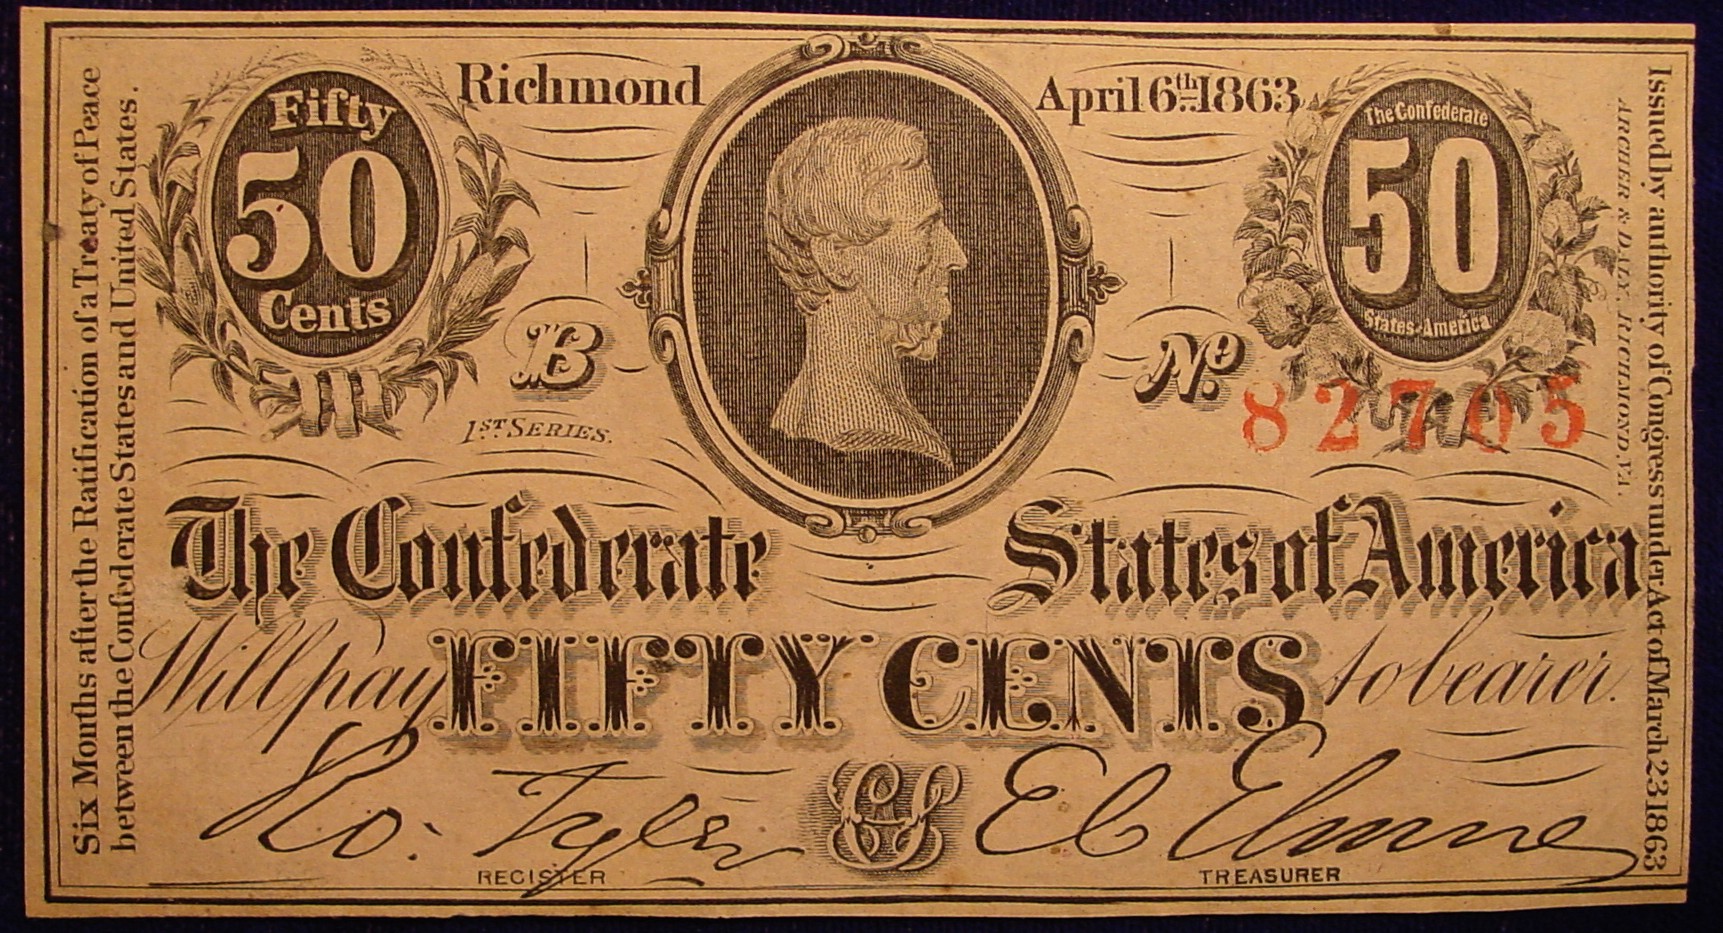 Six Months after the Ratification of a Treaty of Peace
between the Confederate States and United States.
Fifty
50
Cents
Richmond
April 6th 1863
The Confederate
50
States of America
B
1ST SERIES.
No
82705
The Confederate States of America
Will pay FIFTY CENTS to bearer.
Ro. Tyler
REGISTER
CS
E C Elmore
TREASURER
ARCHER & DALY, RICHMOND, VA.
Issued by authority of Congress under Act of March 23 1863